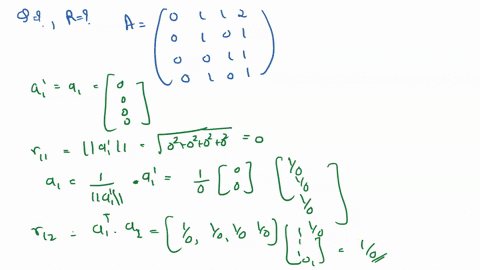 Q=?, R=?
A = ( 0 1 1 2
0 1 0 1
0 0 1 1
0 1 0 1 )
a₁' = a₁ = [ 0
0
0
0 ]
r₁₁ = ||a₁'|| = √(0²+0²+0²+0²) = 0
a₁ = 1/||a₁'|| · a₁' = 1/0 [ 0 0 ] [ 1/0 1/0 1/0 ]
r₁₂ = a₁ᵀ · a₂ = [ 1/0, 1/0, 1/0 1/0 ] [ 1 1 0 1 ] 1/0 = 1/0